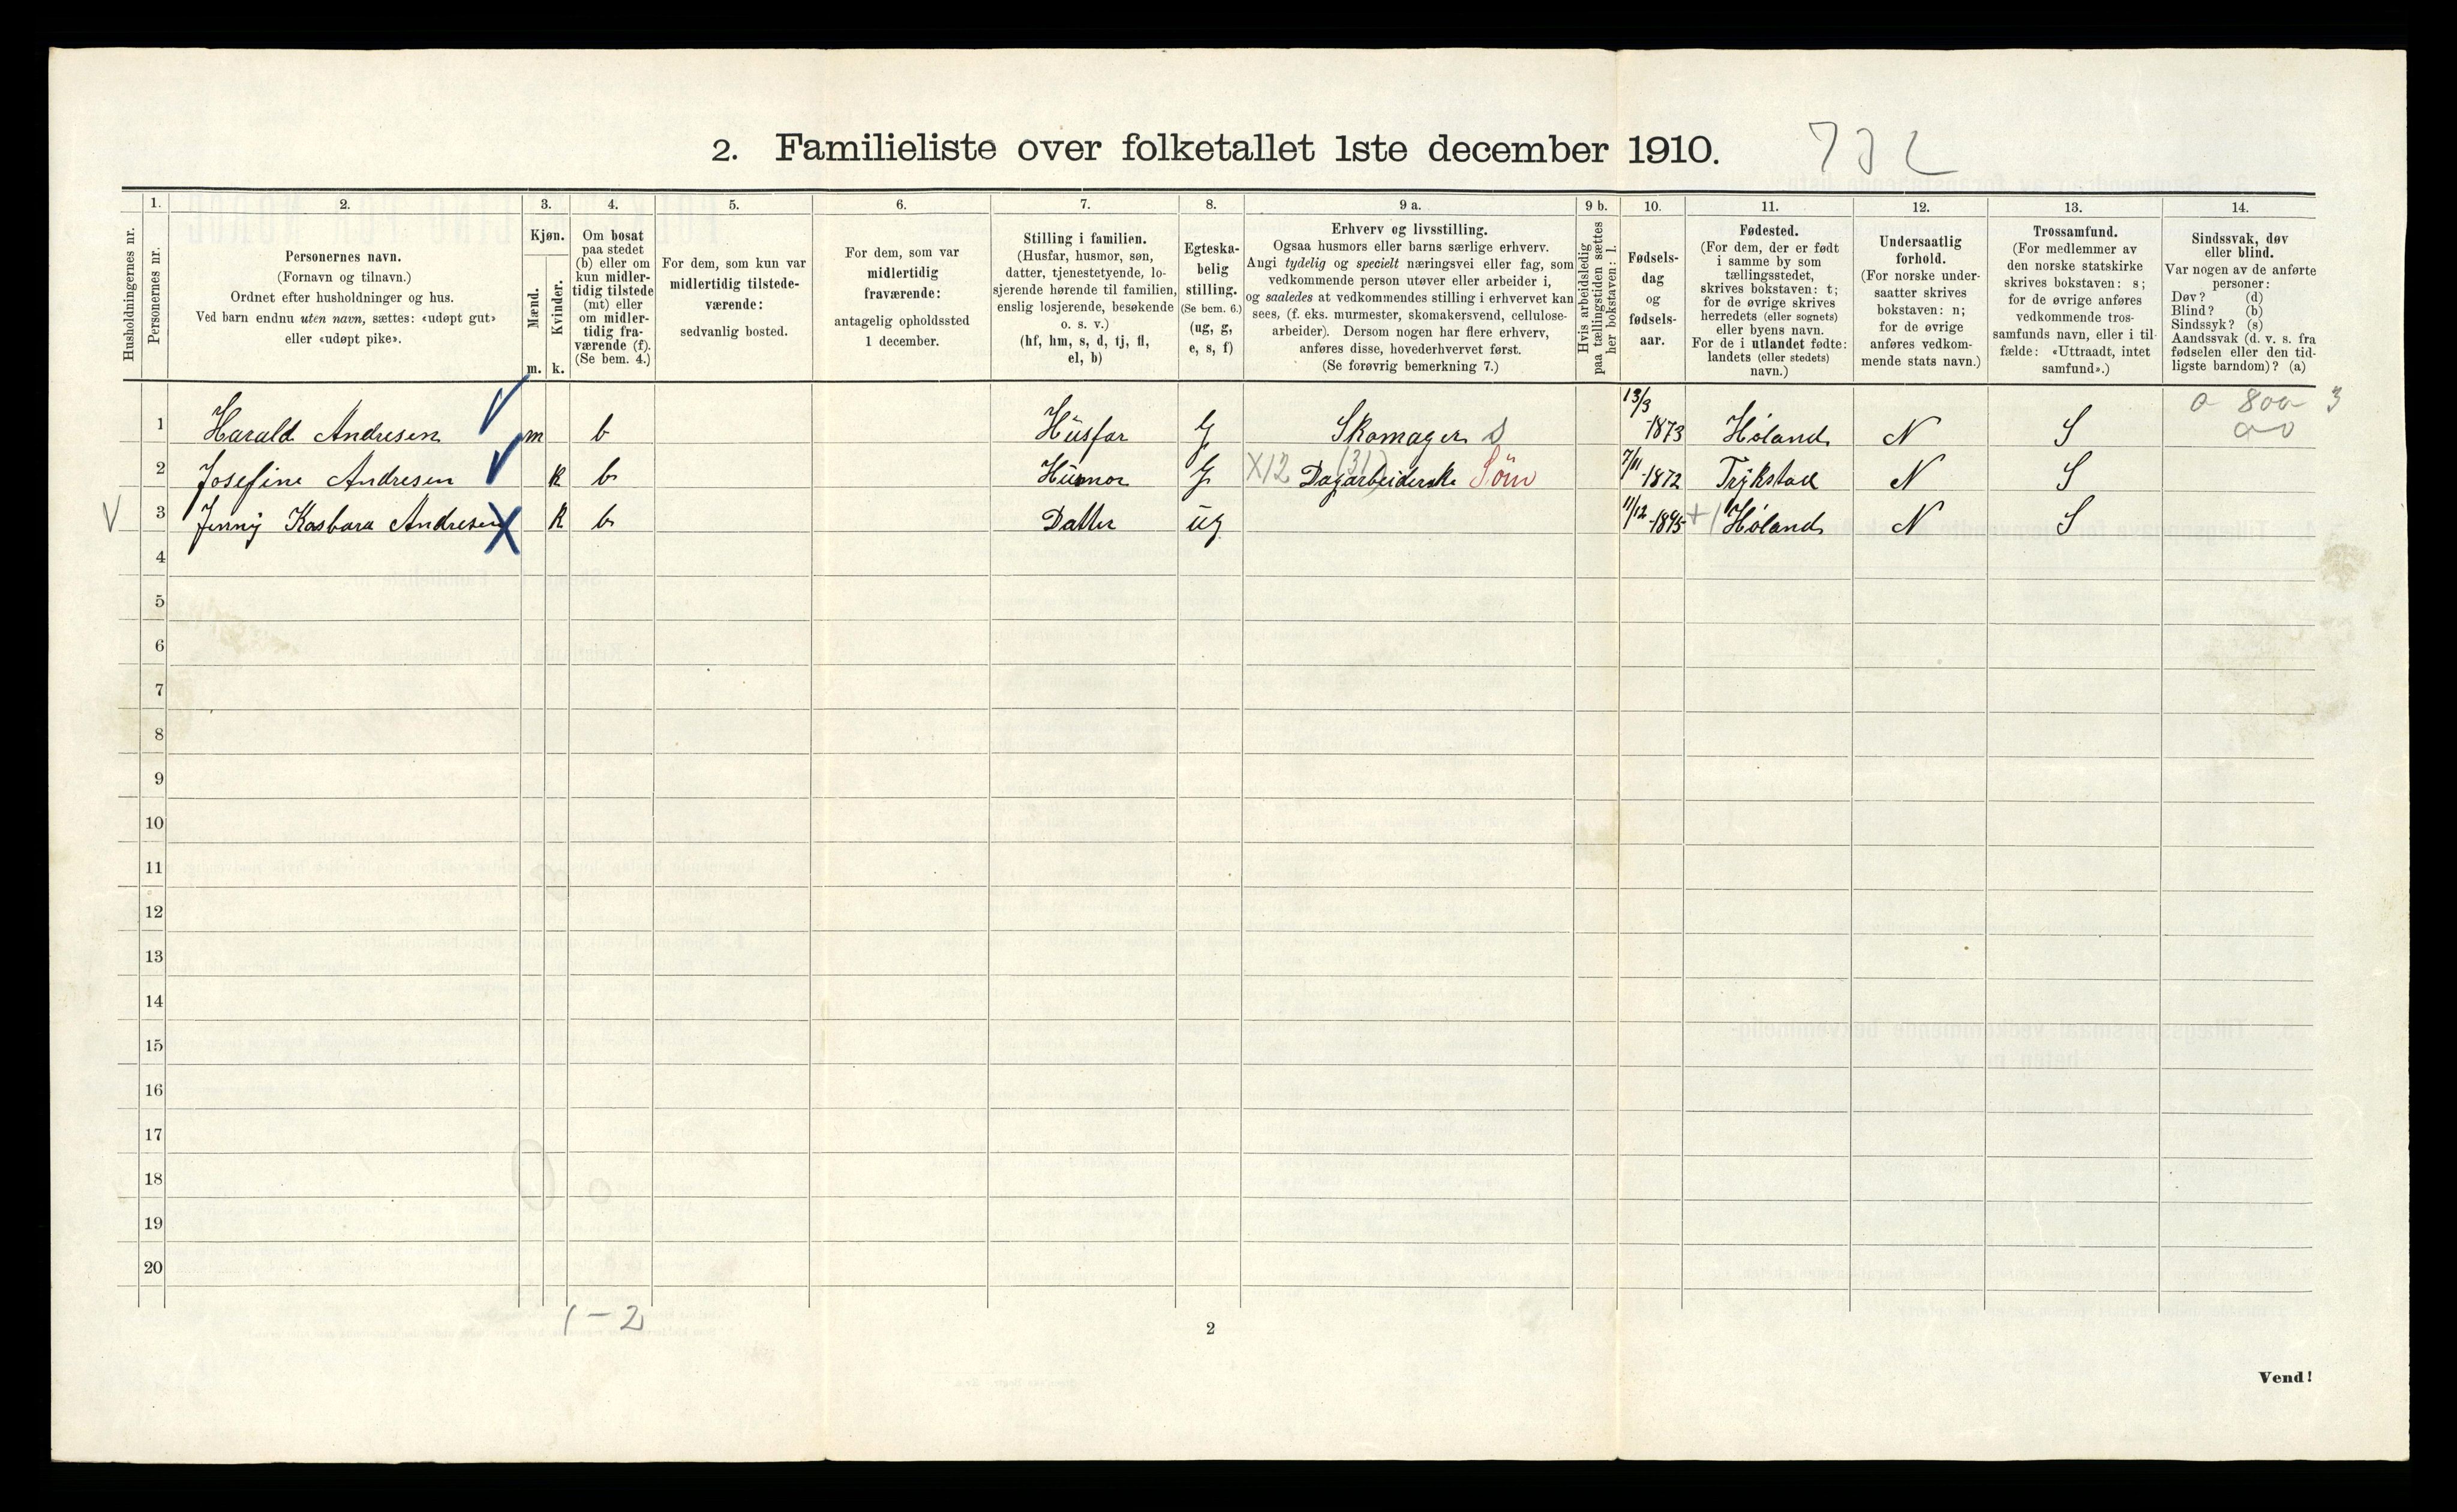 2. Familieliste over folketallet 1ste december 1910.
1. 2. 3. 4. 5. 6. 7. 8. 9 a. 9 b. 10. 11. 12. 13. 14.
Husholdningernes nr.
Personernes nr.
Personernes navn.
(Fornavn og tilnavn.)
Ordnet efter husholdninger og hus.
Ved barn endnu uten navn, sættes: «udøpt gut»
eller «udøpt pike».
Kjøn.
Mænd.
Kvinder.
m. k.
Om bosat
paa stedet
(b) eller om
kun midler-
tidig tilstede
(mt) eller
om midler-
tidig fra-
værende (f).
(Se bem. 4.)
For dem, som kun var
midlertidig tilstede-
værende:
sedvanlig bosted.
For dem, som var
midlertidig
fraværende:
antagelig opholdssted
1 december.
Stilling i familien.
(Husfar, husmor, søn,
datter, tjenestetyende, lo-
sjerende hørende til familien,
enslig losjerende, besøkende
o. s. v.)
(hf, hm, s, d, tj, fl,
el, b)
Egteska-
belig
stilling.
(Se bem. 6.)
(ug, g,
e, s, f)
Erhverv og livsstilling.
Ogsaa husmors eller barns særlige erhverv.
Angi tydelig og specielt næringsvei eller fag, som
vedkommende person utøver eller arbeider i,
og saaledes at vedkommendes stilling i erhvervet kan
sees, (f. eks. murmester, skomakersvend, cellulose-
arbeider). Dersom nogen har flere erhverv,
anføres disse, hovederhvervet først.
(Se forøvrig bemerkning 7.)
Hvis arbeidsledig
paa tællingstiden sættes
her bokstaven: l.
Fødsels-
dag
og
fødsels-
aar.
Fødested.
(For dem, der er født
i samme by som
tællingsstedet,
skrives bokstaven: t;
for de øvrige skrives
herredets (eller sognets)
eller byens navn.
For de i utlandet fødte:
landets (eller stedets)
navn.)
Undersaatlig
forhold.
(For norske under-
saatter skrives
bokstaven: n;
for de øvrige
anføres vedkom-
mende stats navn.)
Trossamfund.
(For medlemmer av
den norske statskirke
skrives bokstaven: s;
for de øvrige anføres
vedkommende tros-
samfunds navn, eller i til-
fælde: «Uttraadt, intet
samfund».)
Sindssvak, døv
eller blind.
Var nogen av de anførte
personer:
Døv? (d)
Blind? (b)
Sindssyk? (s)
Aandssvak (d. v. s. fra
fødselen eller den tid-
ligste barndom)? (a)
1 Harald Andresen m b Husfar G Skomager s 13/3 -1873 Høland N S
2 Josefine Andresen k b Husmor G X12 (31) Dagarbeiderske Söm 7/11 -1872 Trykstad N S
V 3 Jenny Kasbara Andresen X k b Datter ug 11/12 -1895 Høland N S
4
5
6
7
8
9
10
11
12
13
14
15
16
17
18
19
20
1 - 2
2
Vend!